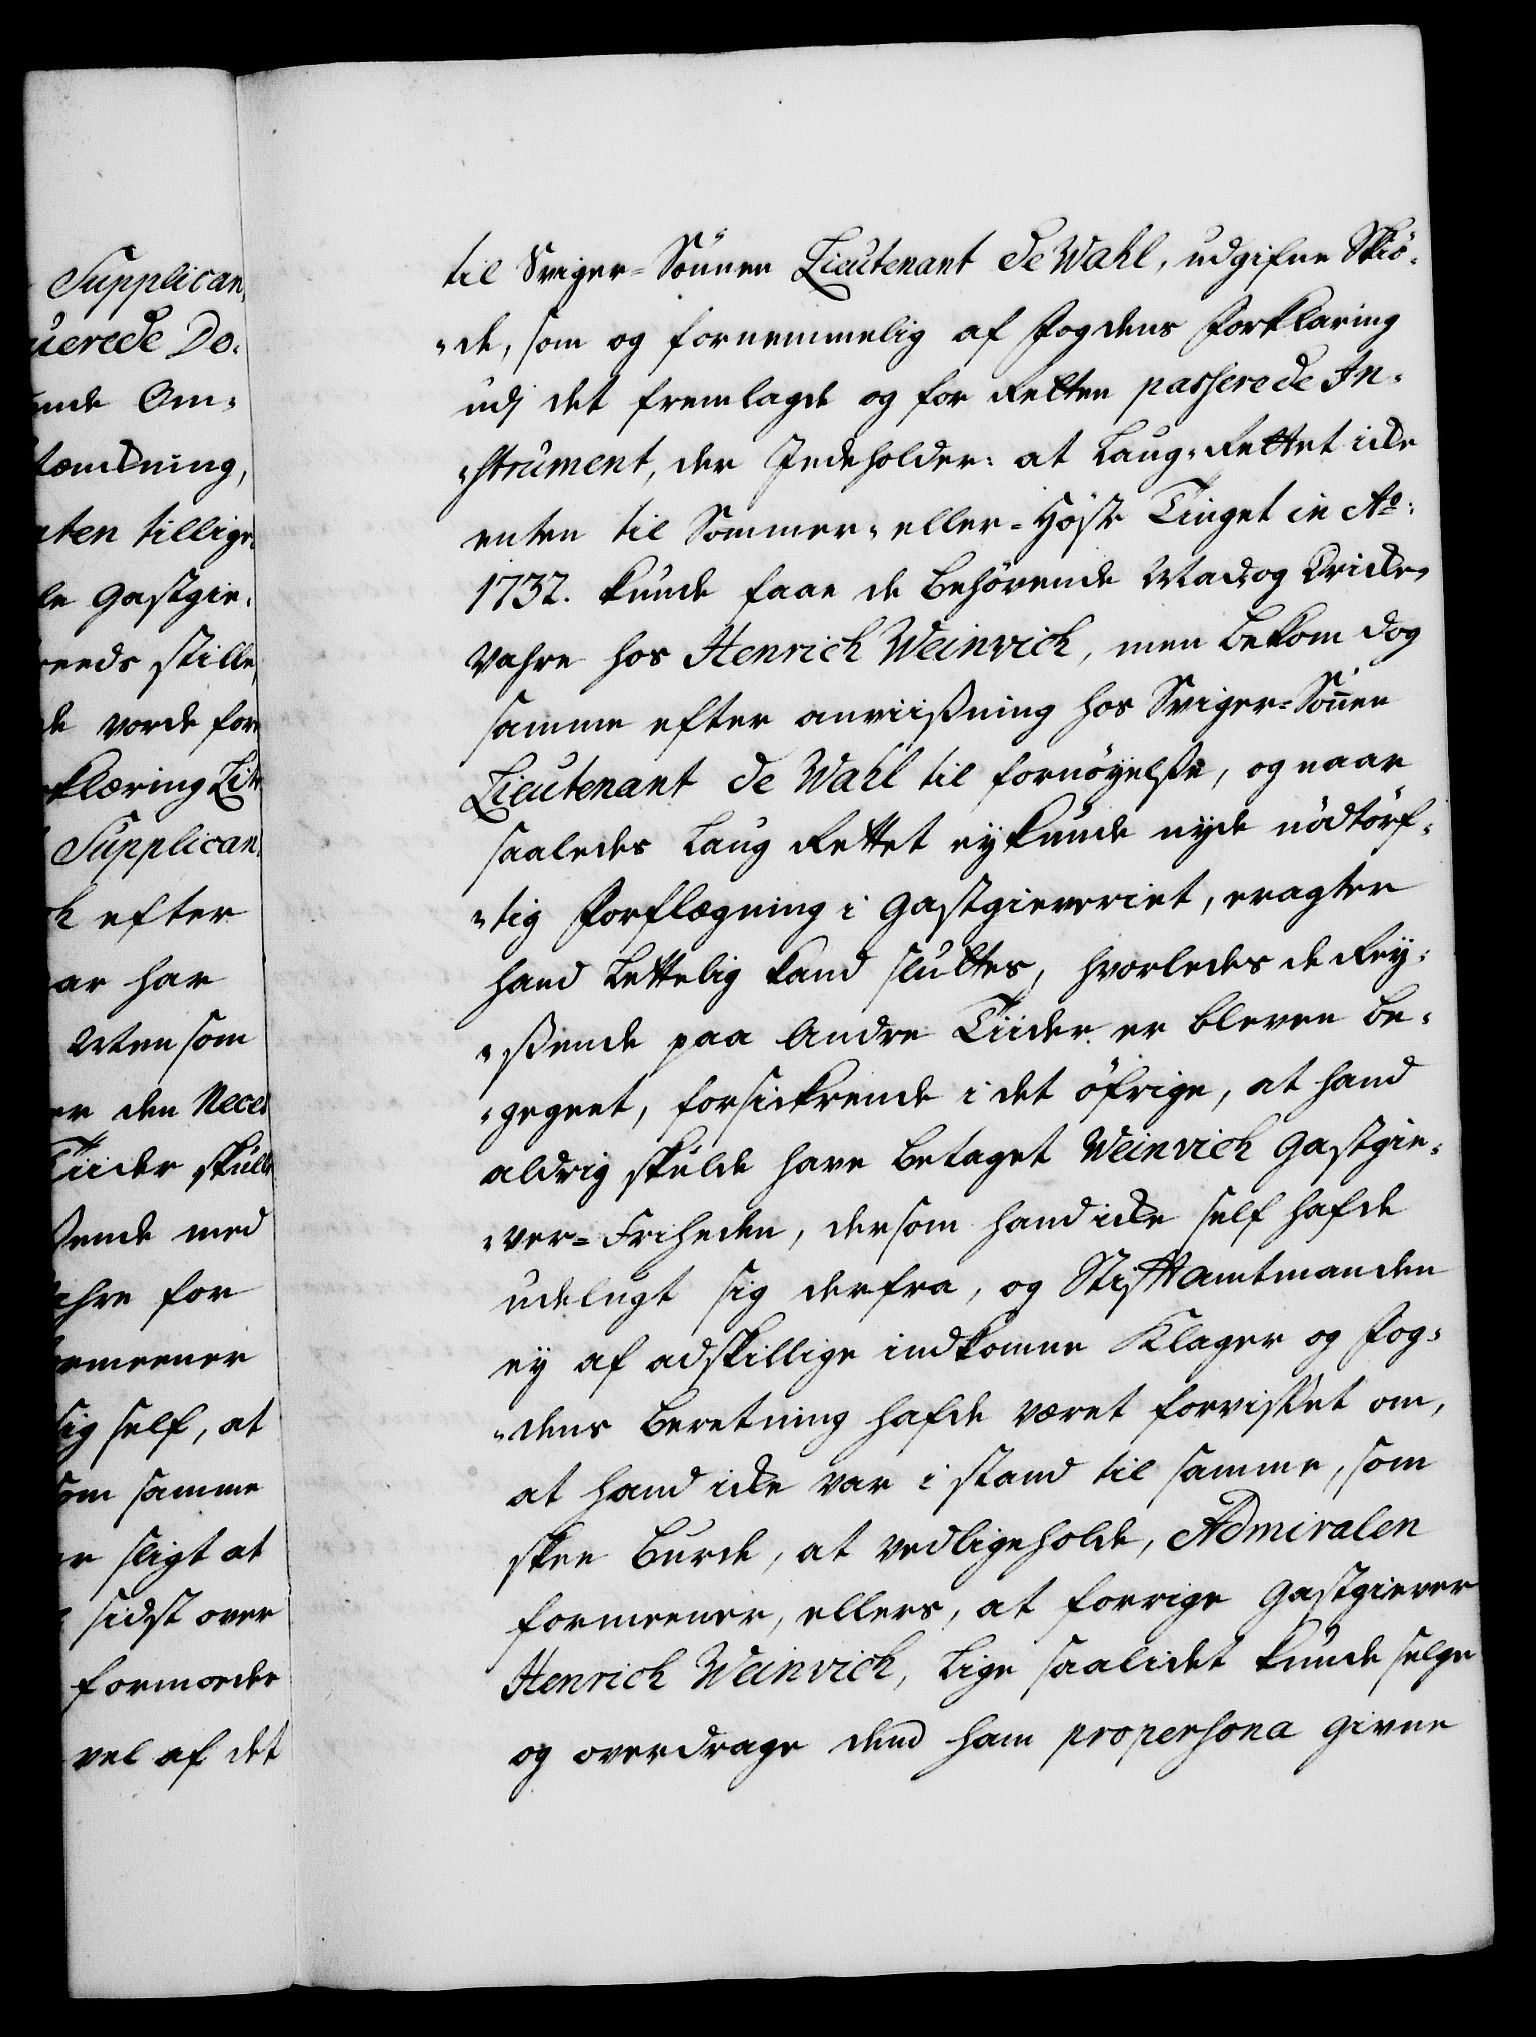 Supplican
uerede Do-
unde Om-
tænkning,
nten tillige
le Gastgie-
reeds stille
de vorde for
klæring Litr
Supplican
k efter
ar har
Men som
er den Neces
Tiider skulle
ßende med
ahre for
rmeener
sig self, at
om samme
er sligt at
sidst over
formoder
vel af det
til Sviger-Sönnen Lieutenant de Wahl, udgifne Skiö-
de, som og fornemmelig af Fogdens Forklaring
udj det fremlagde og for Retten passerede In-
strument, der Indeholder: at Laug-Rettet icke
enten til Sommer- eller-Höste Tinget in Ao:
1732. kunde faae de behövende Mad og Dricke-
Vahre hos Henrich Weinvich, men bekom dog
samme efter anviißning hos Sviger-Sönnen
Lieutenant de Wahl til fornöyelse, og naar
saaledes Laug Rettet ey kunde nyde nödtörf-
tig Forflægning i Gastgieveriet, eragter
hand Lettelig kand sluttes, hvorledes de Rey-
ßende paa Andre Tiider er bleven be-
gegnet, forsickrende i det öfrige, at hand
aldrig skulde have betaget Weinvich Gastgie-
ver-Friheden, dersom hand icke self hafde
udelugt sig derfra, og Stiftamtmanden
ey af adskillige indkomne Klager og Fog-
dens Beretning hafde været forvisset om,
at hand icke var i stand til samme, som
skee burde, at vedligeholde, Admiralen
formeener, ellers, at forrige Gastgiever
Henrich Weinvich, lige saalidet kunde selge
og overdrage dend ham pro persona givne